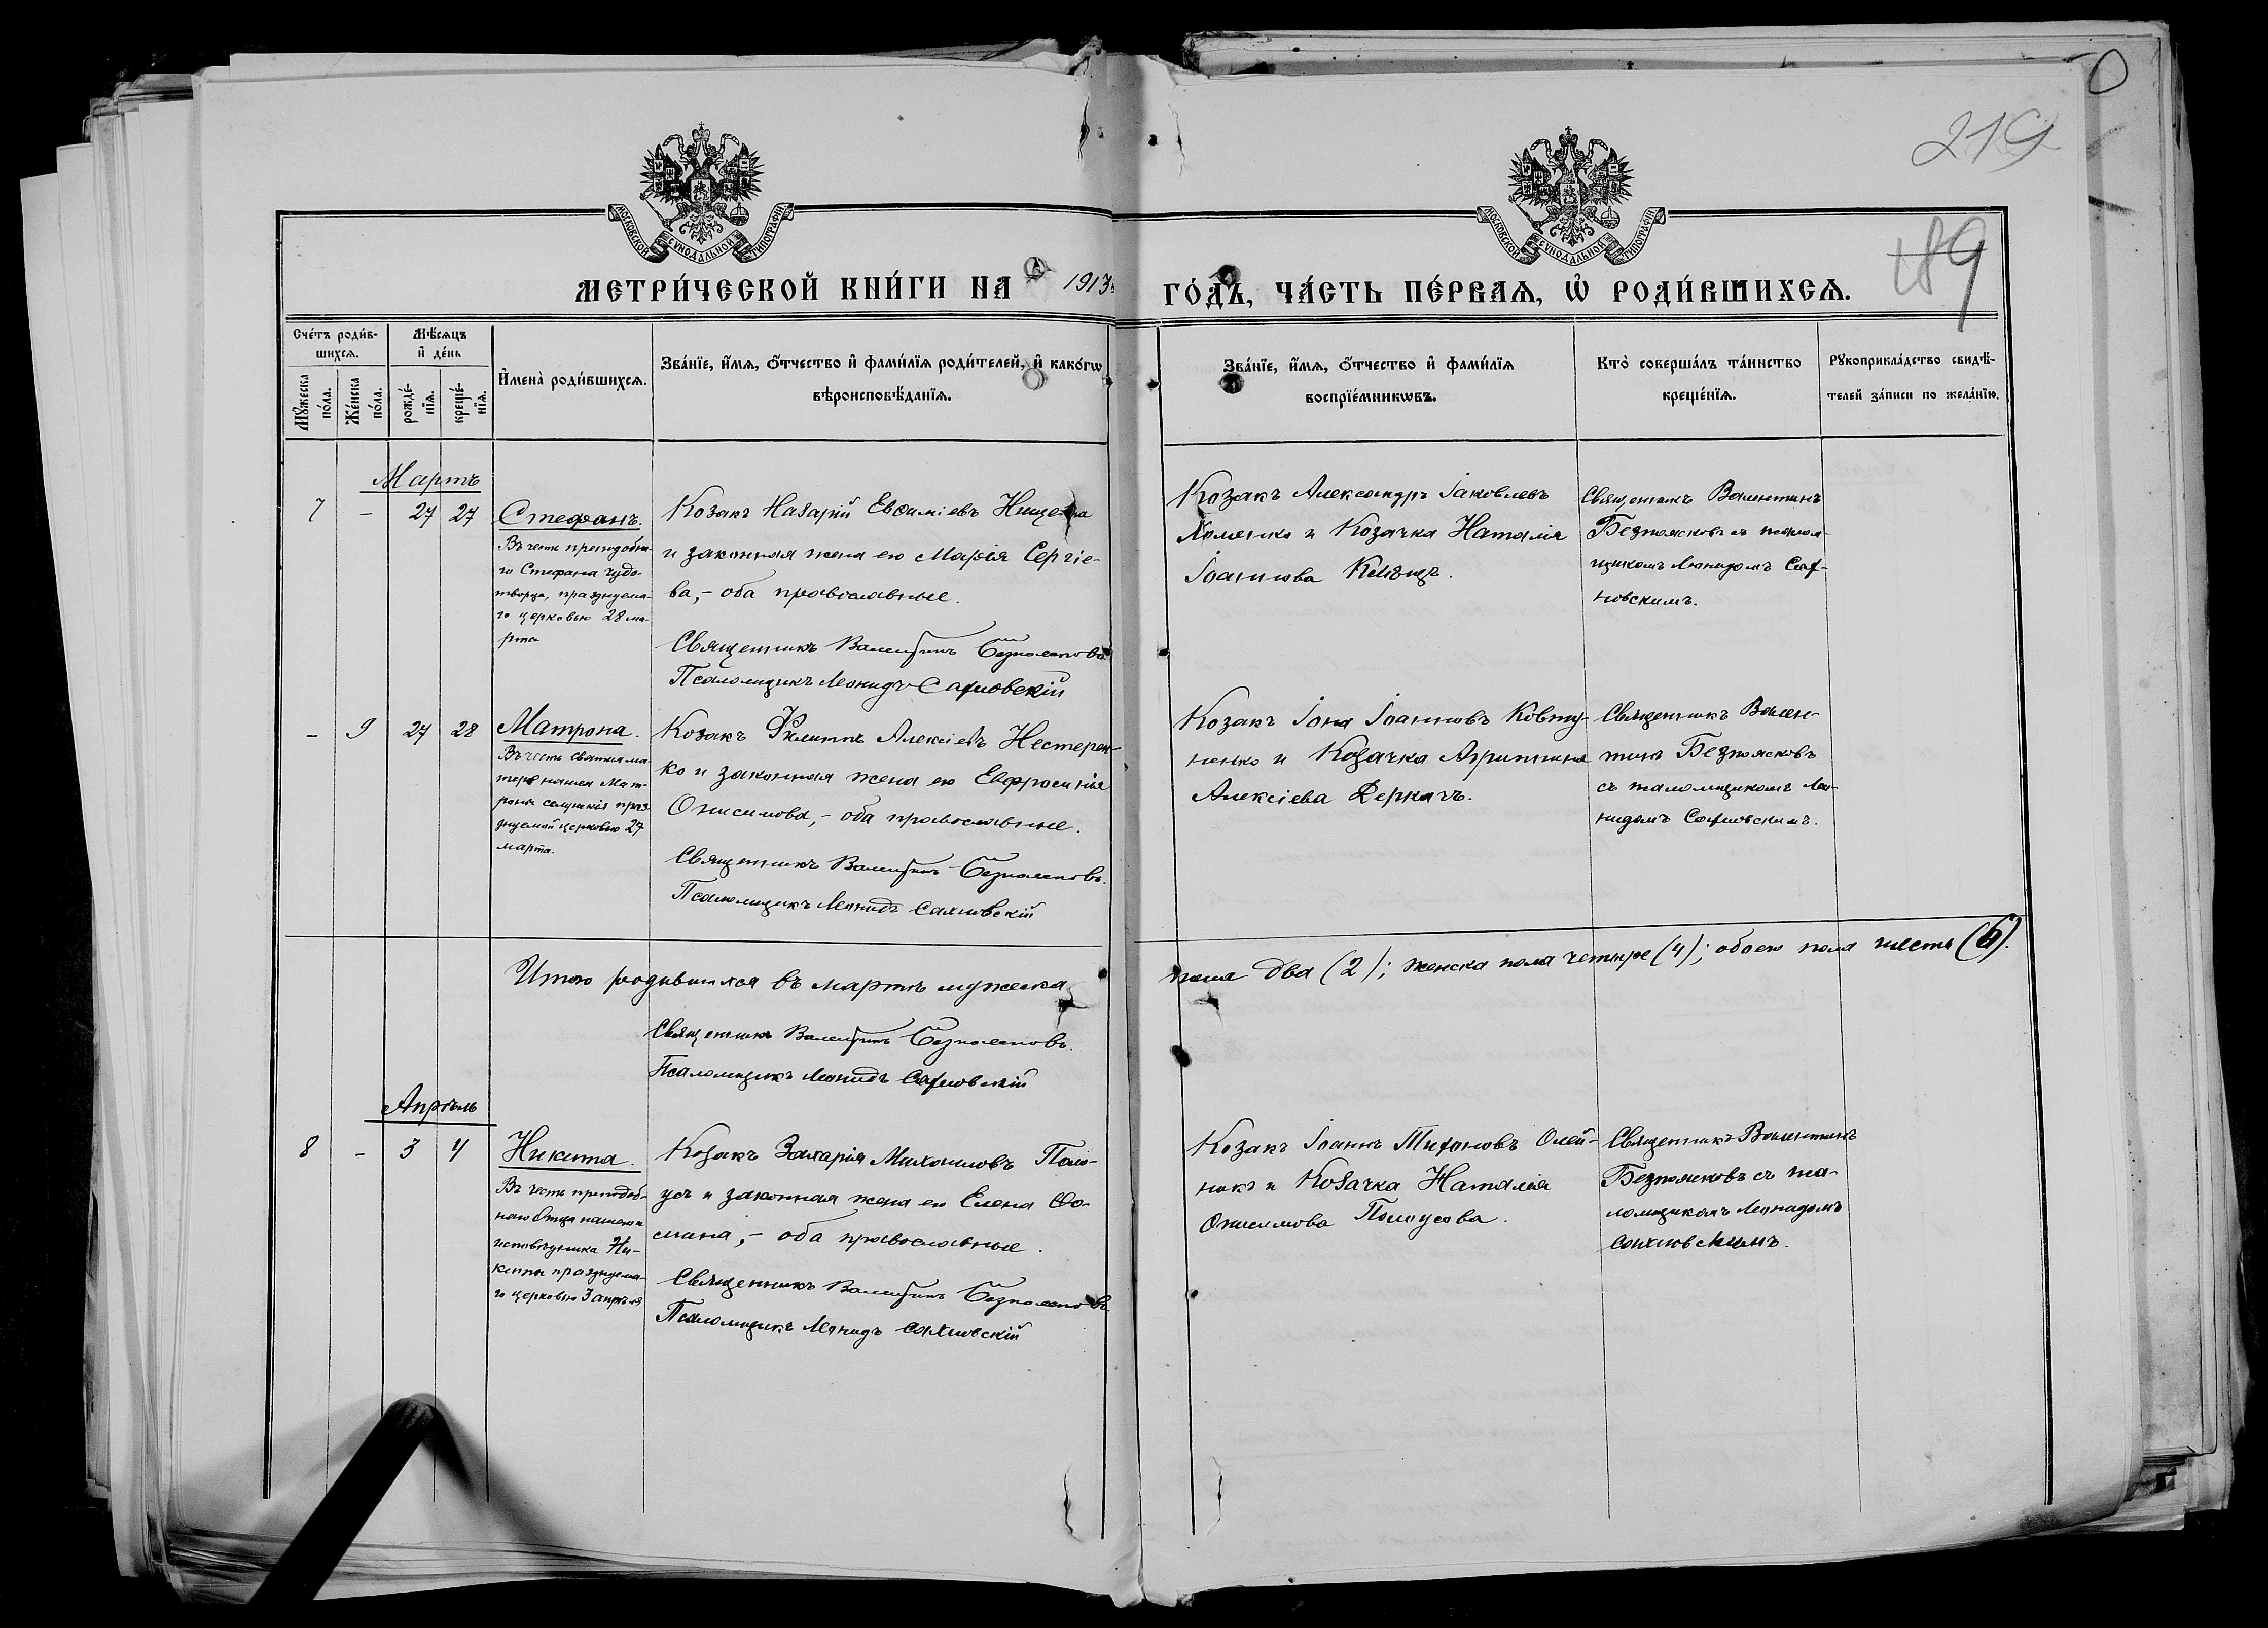 219
189
МОСКОВСКОЙ СУНОДАЛЬНОЙ ТИПОГРАФІИ
МОСКОВСКОЙ СУНОДАЛЬНОЙ ТИПОГРАФІИ
МЕТРИ́ЧЕСКОЙ КНИ́ГИ НА 1913 ГО́ДЪ, ЧА́СТЬ ПЕ́РВАЯ, Ѡ РОДИ́ВШИХСЯ.
Сче́тъ роди́вшихся.
Мꙋ́жеска по́ла.
Же́нска по́ла.
Мѣ́сяцъ и҆ де́нь
рожде́нїя.
креще́нїя.
И҆мена̀ роди́вшихся.
Зва́нїе, и҆́мя, ѻ҆́тчество и҆ фами́лїя роди́телей, и҆ како́гѡ
вѣроисповѣ́данїя.
Зва́нїе, и҆́мя, ѻ҆́тчество и҆ фами́лїя
воспрїе́мникѡвъ.
Кто̀ соверша́лъ та́инство
креще́нїя.
Рꙋкоприкла́дство свидѣ́-
телей за́писи по жела́нїю.
Мартъ
7 - 27 27
Стефанъ.
Въ честь преподобна-
го Стефана чудо-
творца, празднуема-
го церковью 28 ма-
рта
Козакъ Назарій Евѳиміевъ
и законная жена его Марія Сергіе-
ва, - оба православные.
Священникъ Валентинъ Безпоясковъ
Псаломщикъ Леонидъ Сахновскій
Козакъ Александръ Іаковлевъ
Хоменко и Козачка Наталія
Іоаннова
Священникъ Валентинъ
Безпоясковъ съ псалом-
щикомъ Леонидомъ Сах-
новскимъ.
- 9 27 28
Матрона.
Въ честь святыя ма-
тере нашея Мат-
роны селунскія праз-
днуемой церковью 27
марта.
Козакъ Филиппъ Алексіевъ Нестерен-
ко и законная жена его Евфросинія
Онисимова, - оба православные.
Священникъ Валентинъ Безпоясковъ.
Псаломщикъ Леонидъ Сахновскій
Козакъ Іона Іоанновъ Ковту-
ненко и Козачка Агриппина
Алексіева Деркачъ.
Священникъ Вален-
тинъ Безпоясковъ
съ псаломщикомъ Лео-
нидомъ Сахновскимъ.
Итого родившихся въ мартѣ мужеска пола два (2); женска пола четыре (4); обоего пола шесть (6).
Священникъ Валентинъ Безпоясковъ.
Псаломщикъ Леонидъ Сахновскій
Апрѣль
8 - 3 4
Никита.
Въ честь преподоб-
наго Отца нашего и
исповѣдника Ни-
киты празднуема-
го церковью 3 апрѣля
Козакъ Захарія Михаиловъ Поло-
усъ и законная жена его Елена Ѳо-
мина, - оба православные.
Священникъ Валентинъ Безпоясковъ
Псаломщикъ Леонидъ Сахновскій
Козакъ Іоаннъ Тихоновъ Олей-
никъ и Козачка Наталія
Онисимова Полоусова.
Священникъ Валентинъ
Безпоясковъ съ пса-
ломщикомъ Леонидомъ
Сахновскимъ.